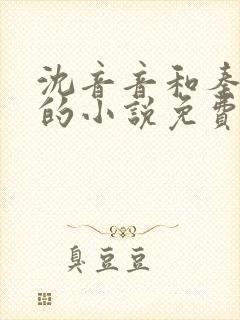 沈音音和秦
的小說免費
臭豆豆